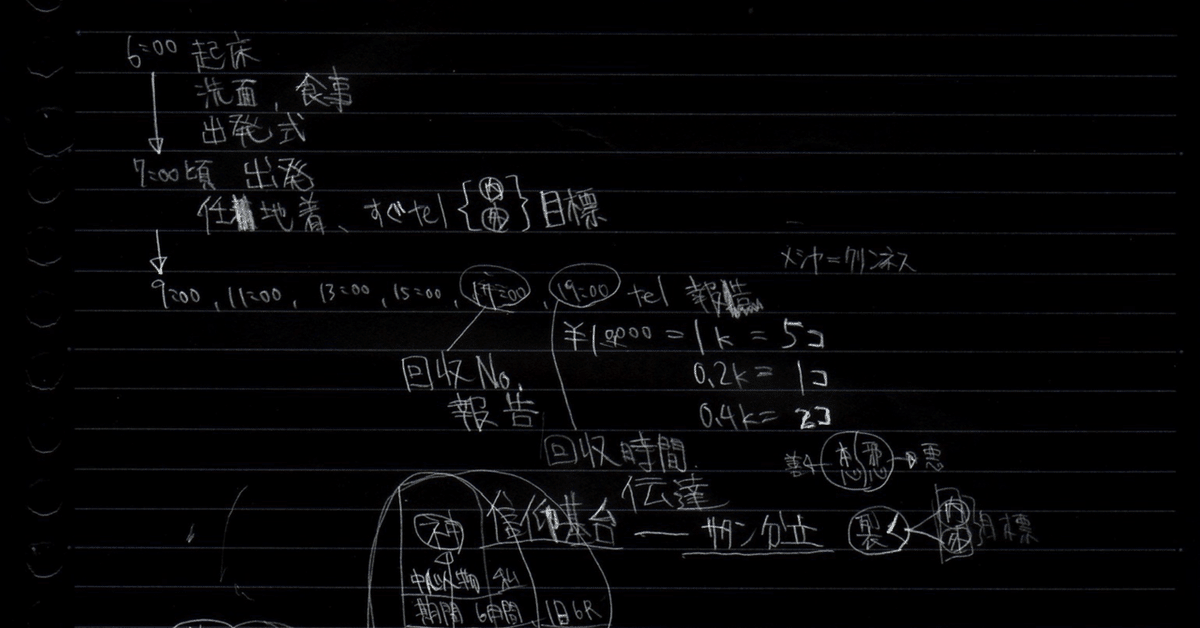 6:00 起床
洗面, 食事
出発式
7:00頃 出発
任地着、すぐtel {内 外} 目標
メシヤ=クリンネス
9:00, 11:00, 13:00, 15:00, 17:00, 19:00 tel 報告
¥10000 = 1k = 5コ
0.2k = 1コ
0.4k = 2コ
回収No.
報告
回収時間.
伝達
善 想 悪
神 信仰基台 — サタン分立 裂 内 外 目標
中心人物 私
期間 6日間 1日6R